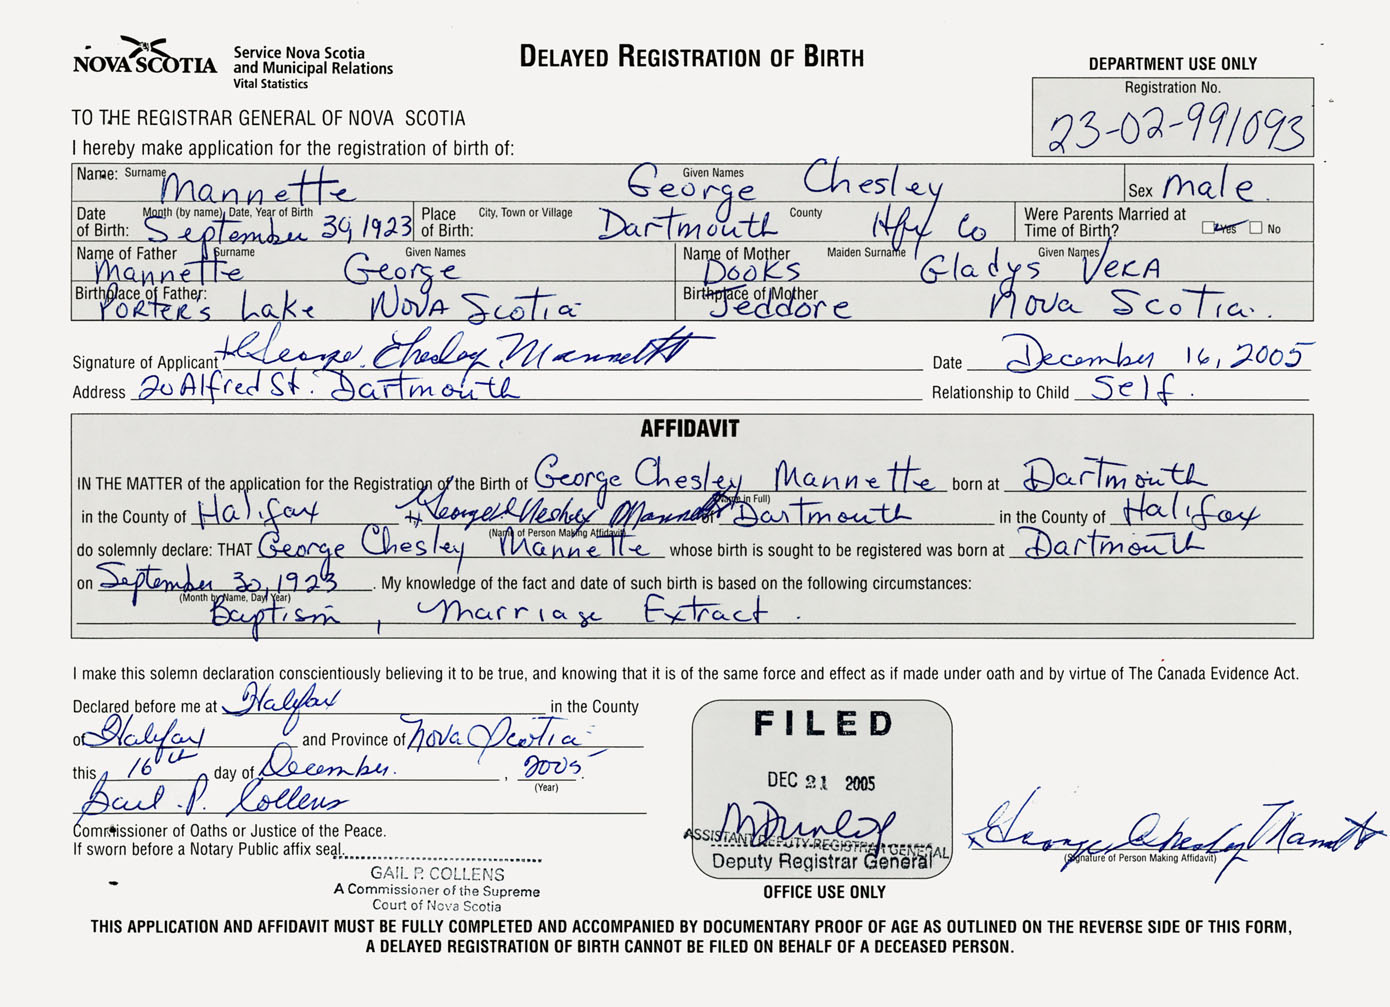 NOVA SCOTIA
Service Nova Scotia
and Municipal Relations
Vital Statistics
DELAYED REGISTRATION OF BIRTH
DEPARTMENT USE ONLY
Registration No.
23-02-991093
TO THE REGISTRAR GENERAL OF NOVA SCOTIA
I hereby make application for the registration of birth of:
Name: Surname Mannette Given Names George Chesley Sex male.
Date of Birth: Month (by name), Date, Year of Birth September 30, 1923 Place of Birth: City, Town or Village Dartmouth County Hfx Co Were Parents Married at Time of Birth? Yes No
Name of Father Surname Mannette Given Names George Name of Mother Maiden Surname Dooks Given Names Gladys Vera
Birthplace of Father: Porters Lake Nova Scotia Birthplace of Mother Jeddore Nova Scotia.
Signature of Applicant George Chesley Mannette Date December 16, 2005
Address 20 Alfred St. Dartmouth Relationship to Child Self.
AFFIDAVIT
IN THE MATTER of the application for the Registration of the Birth of George Chesley Mannette born at Dartmouth
(Name in Full)
in the County of Halifax George Chesley Mannette of Dartmouth in the County of Halifax
(Name of Person Making Affidavit)
do solemnly declare: THAT George Chesley Mannette whose birth is sought to be registered was born at Dartmouth
on September 30, 1923. My knowledge of the fact and date of such birth is based on the following circumstances:
(Month by Name, Day, Year)
Baptism, Marriage Extract.
I make this solemn declaration conscientiously believing it to be true, and knowing that it is of the same force and effect as if made under oath and by virtue of The Canada Evidence Act.
Declared before me at Halifax in the County
of Halifax and Province of Nova Scotia
this 16th day of December, 2005
(Year)
Gail P. Collens
Commissioner of Oaths or Justice of the Peace.
If sworn before a Notary Public affix seal.
GAIL P. COLLENS
A Commissioner of the Supreme
Court of Nova Scotia
FILED
DEC 21 2005
MDunlop
ASSISTANT DEPUTY REGISTRAR GENERAL
Deputy Registrar General
OFFICE USE ONLY
George Chesley Mannette
(Signature of Person Making Affidavit)
THIS APPLICATION AND AFFIDAVIT MUST BE FULLY COMPLETED AND ACCOMPANIED BY DOCUMENTARY PROOF OF AGE AS OUTLINED ON THE REVERSE SIDE OF THIS FORM,
A DELAYED REGISTRATION OF BIRTH CANNOT BE FILED ON BEHALF OF A DECEASED PERSON.